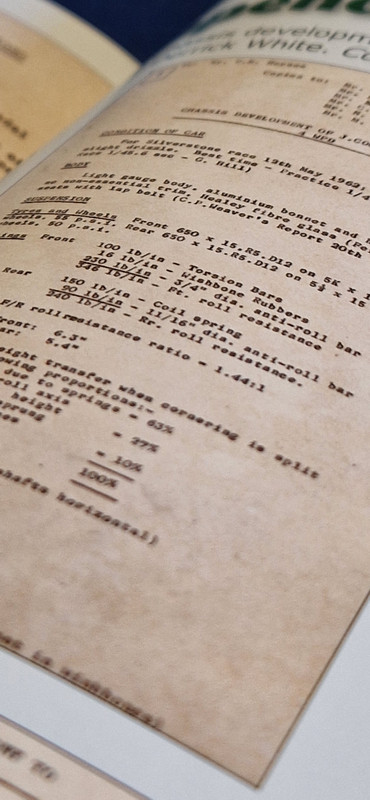 development
rick White.
Copies to:
CHASSIS DEVELOPMENT OF J.CO
4 WPD
CONDITION OF CAR
For Silverstone race 12th May 1962;
slight drizzle. Best time - Practice 1/4
race 1/45.6 sec - G. Hill)
BODY
Light gauge body, aluminium bonnet and
no non-essential trim, Healey fibre glass
seats with lap belt (C.J.Weaver's Report 20th
SUSPENSION
Tyres and wheels Front 650 x 15.R5.D12 on 5K x 1
wheels, 50 p.s.i. Rear 650 x 15.R5.D12 on 5½ x 15
Front 100 lb/in - Torsion Bars
16 lb/in - Wishbone Rubbers
230 lb/in - 3/4" dia. anti-roll bar
346 lb/in - Ft. roll resistance
Rear 150 lb/in - Coil spring
90 lb/in - 11/16" dia. anti-roll bar
240 lb/in - Rr. roll resistance.
F/R roll resistance ratio - 1.44:1
Front: 6.3"
ar: 5.4"
eight transfer when cornering is split
owing proportions:-
due to springs = 63%
roll axis
height = 27%
sprung
= 10%
100%
shafts horizontal)